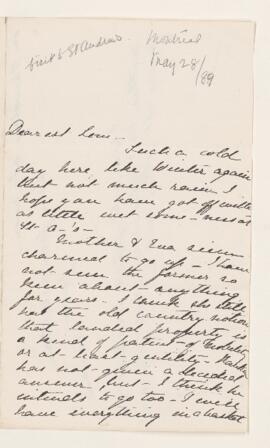 Visit to St Andrews
Montreal
May 28/
89
Dearest Lou -
Such a cold
day here like Winter again
but not much rain I
hope you have got off with
as little wet some - ness at
St A's -
Mother & Eva seem
charmed to go up - I have
not seen the former so
keen about - anything
for years - I think she still
has the old country notion
that landed property is
a kind of patent - of
or at - least - gentility. 
has not - given a decided
answer, but - I think he
intends to go too - I will
have everything in a basket